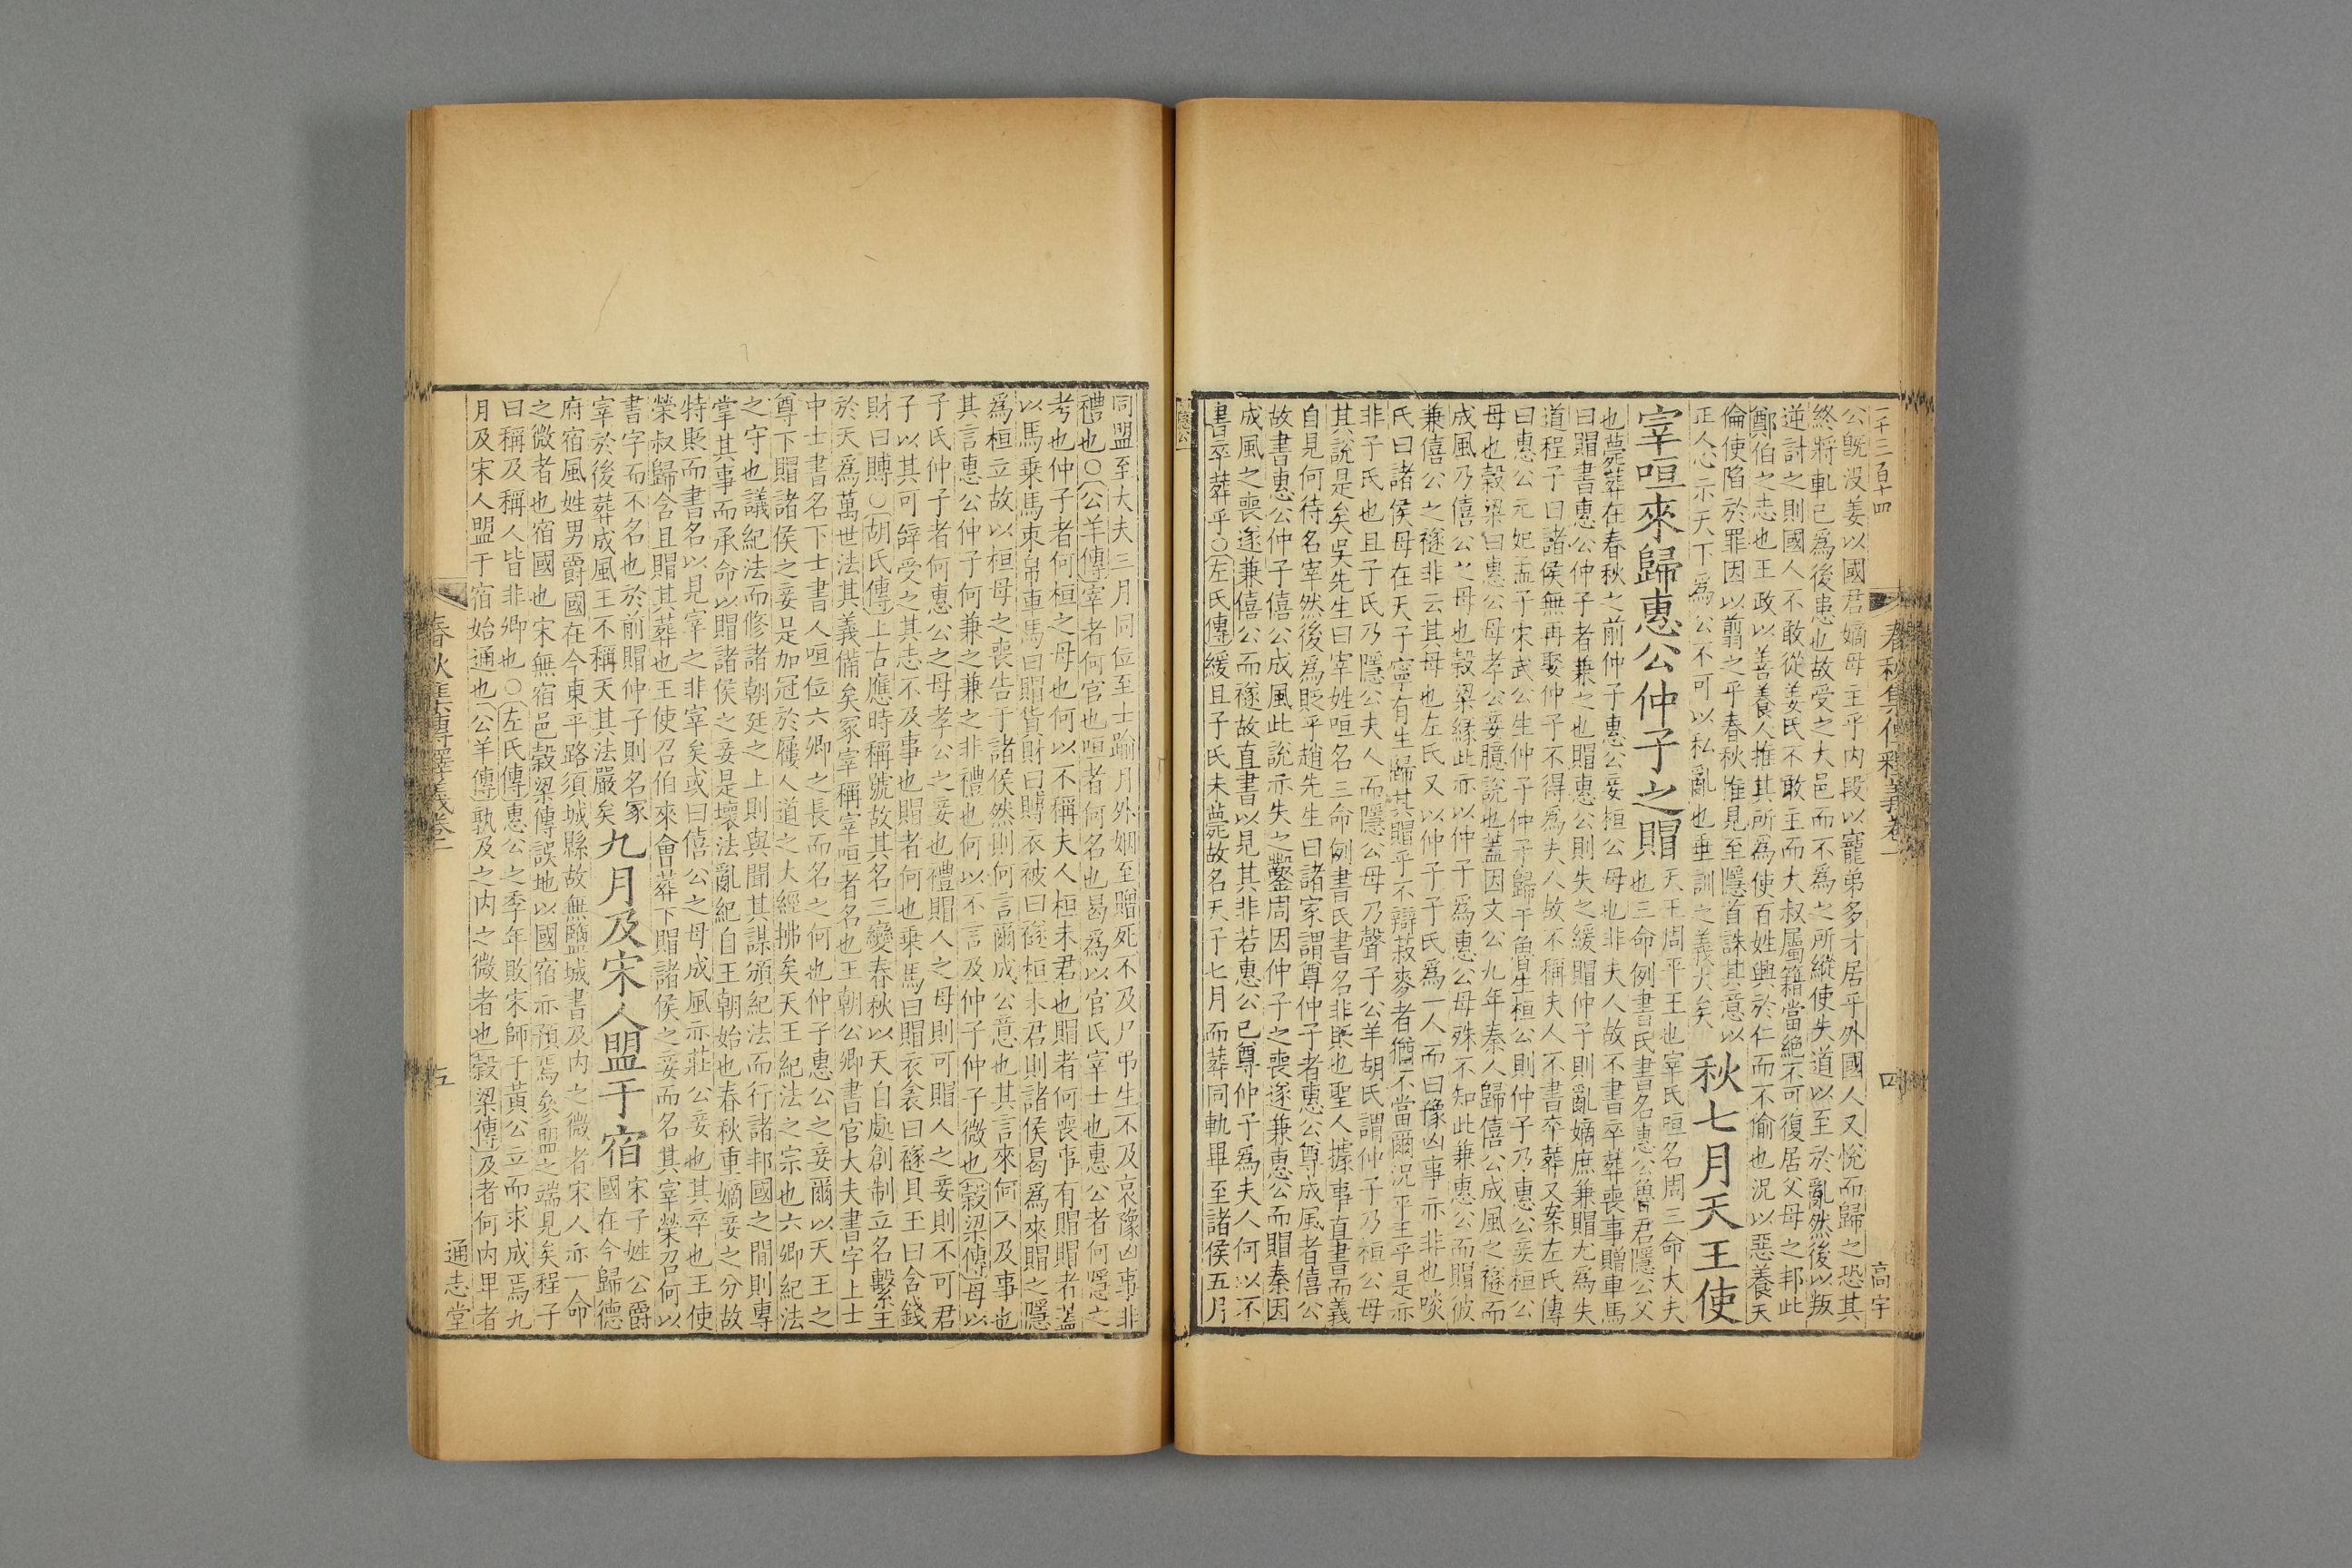 二千三百十四
春秋集傳釋義卷一
四
高宇
公旣没姜以國君嫡母主乎内段以寵弟多才居乎外國人又悅而歸之恐其
終將軋己為後患也故受之大邑而不為之所縱使失道以至於亂然後以叛
逆討之則國人不敢從姜氏不敢主而大叔屬籍當絶不可復居父母之邦此
鄭伯之志也王政以善養人推其所為使百姓興於仁而不偷也況以惡養天
倫使陷於罪因以翦之乎春秋推見至隱首誅其意以
正人心示天下為公不可以私亂也垂訓之義大矣 秋七月天王使
宰咺來歸惠公仲子之賵 天王周平王也宰氏咺名周三命大夫
也三命例書氏書名惠公魯君隱公父
也薨葬在春秋之前仲子惠公妾桓公母也非夫人故不書卒葬喪事贈車馬
曰賵書惠公仲子者兼之也賵惠公則失之緩賵仲子則亂嫡庶兼賵尤為失
道程子曰諸侯無再娶仲子不得為夫人故不稱夫人不書卒葬又案左氏傳
曰惠公元妃孟子宋武公生仲子仲子歸于魯生桓公則仲子乃惠公妾桓公
母也穀梁曰惠公母孝公妾臆說也蓋因文公九年秦人歸僖公成風之襚而
成風乃僖公之母也穀梁緣此亦以仲子為惠公母殊不知此兼惠公而賵彼
兼僖公之襚非云其母也左氏又以仲子子氏為一人而曰豫凶事亦非也啖
氏曰諸侯母在天子寧有生歸其賵乎不辯菽麥者猶不當爾況平王乎是亦
非子氏也且子氏乃隱公夫人而隱公母乃聲子公羊胡氏謂仲子乃桓公母
其說是矣吳先生曰宰姓咺名三命例書氏書名非貶也聖人據事直書而義
自見何待名宰然後為貶乎趙先生曰諸家謂尊仲子者惠公尊成風者僖公
故書惠公仲子僖公成風此說亦失之鑿周因仲子之喪遂兼惠公而賵秦因
成風之喪遂兼僖公而襚故直書以見其非若惠公已尊仲子為夫人何以不
書卒葬乎○左氏傳緩且子氏未薨故名天子七月而葬同軌畢至諸侯五月
同盟至大夫三月同位至士踰月外姻至贈死不及尸弔生不及哀豫凶事非
禮也○公羊傳宰者何官也咺者何名也曷為以官氏宰士也惠公者何隱之
考也仲子者何桓之母也何以不稱夫人桓未君也賵者何喪事有賵賵者蓋
以馬乘馬束帛車馬曰賵貨財曰賻衣被曰襚桓未君則諸侯曷為來賵之隱
為桓立故以桓母之喪告于諸侯然則何言爾成公意也其言來何不及事也
其言惠公仲子何兼之兼之非禮也何以不言及仲子仲子微也穀梁傳母以
子氏仲子者何惠公之母孝公之妾也禮賵人之母則可賵人之妾則不可君
子以其可辭受之其志不及事也賵者何也乘馬曰賵衣衾曰襚貝玉曰含錢
財曰賻○胡氏傳上古應時稱號故其名三變春秋以天自處創制立名繫王
於天為萬世法其義備矣冢宰稱宰咺者名也王朝公卿書官大夫書字上士
中士書名下士書人咺位六卿之長而名之何也仲子惠公之妾爾以天王之
尊下賵諸侯之妾是加冠於屨人道之大經拂矣天王紀法之宗也六卿紀法
之守也議紀法而修諸朝廷之上則與聞其謀頒紀法而行諸邦國之間則專
掌其事而承命以賵諸侯之妾是壞法亂紀自王朝始也春秋重嫡妾之分故
特貶而書名以見宰之非宰矣或曰僖公之母成風亦莊公妾也其卒也王使
榮叔歸含且賵其葬也王使召伯來會葬下賵諸侯之妾而名其宰榮召何以
書字而不名也於前賵仲子則名冢
宰於後葬成風王不稱天其法嚴矣 九月及宋人盟于宿 宋子姓公爵
國在今歸德
府宿風姓男爵國在今東平路須城縣故無鹽城書及内之微者宋人亦一命
之微者也宿國也宋無宿邑穀梁傳誤地以國宿亦預焉參盟之端見矣程子
曰稱及稱人皆非卿也○左氏傳惠公之季年敗宋師于黃公立而求成焉九
月及宋人盟于宿始通也公羊傳孰及之内之微者也穀梁傳及者何内卑者
春秋集傳釋義卷一
五
通志堂